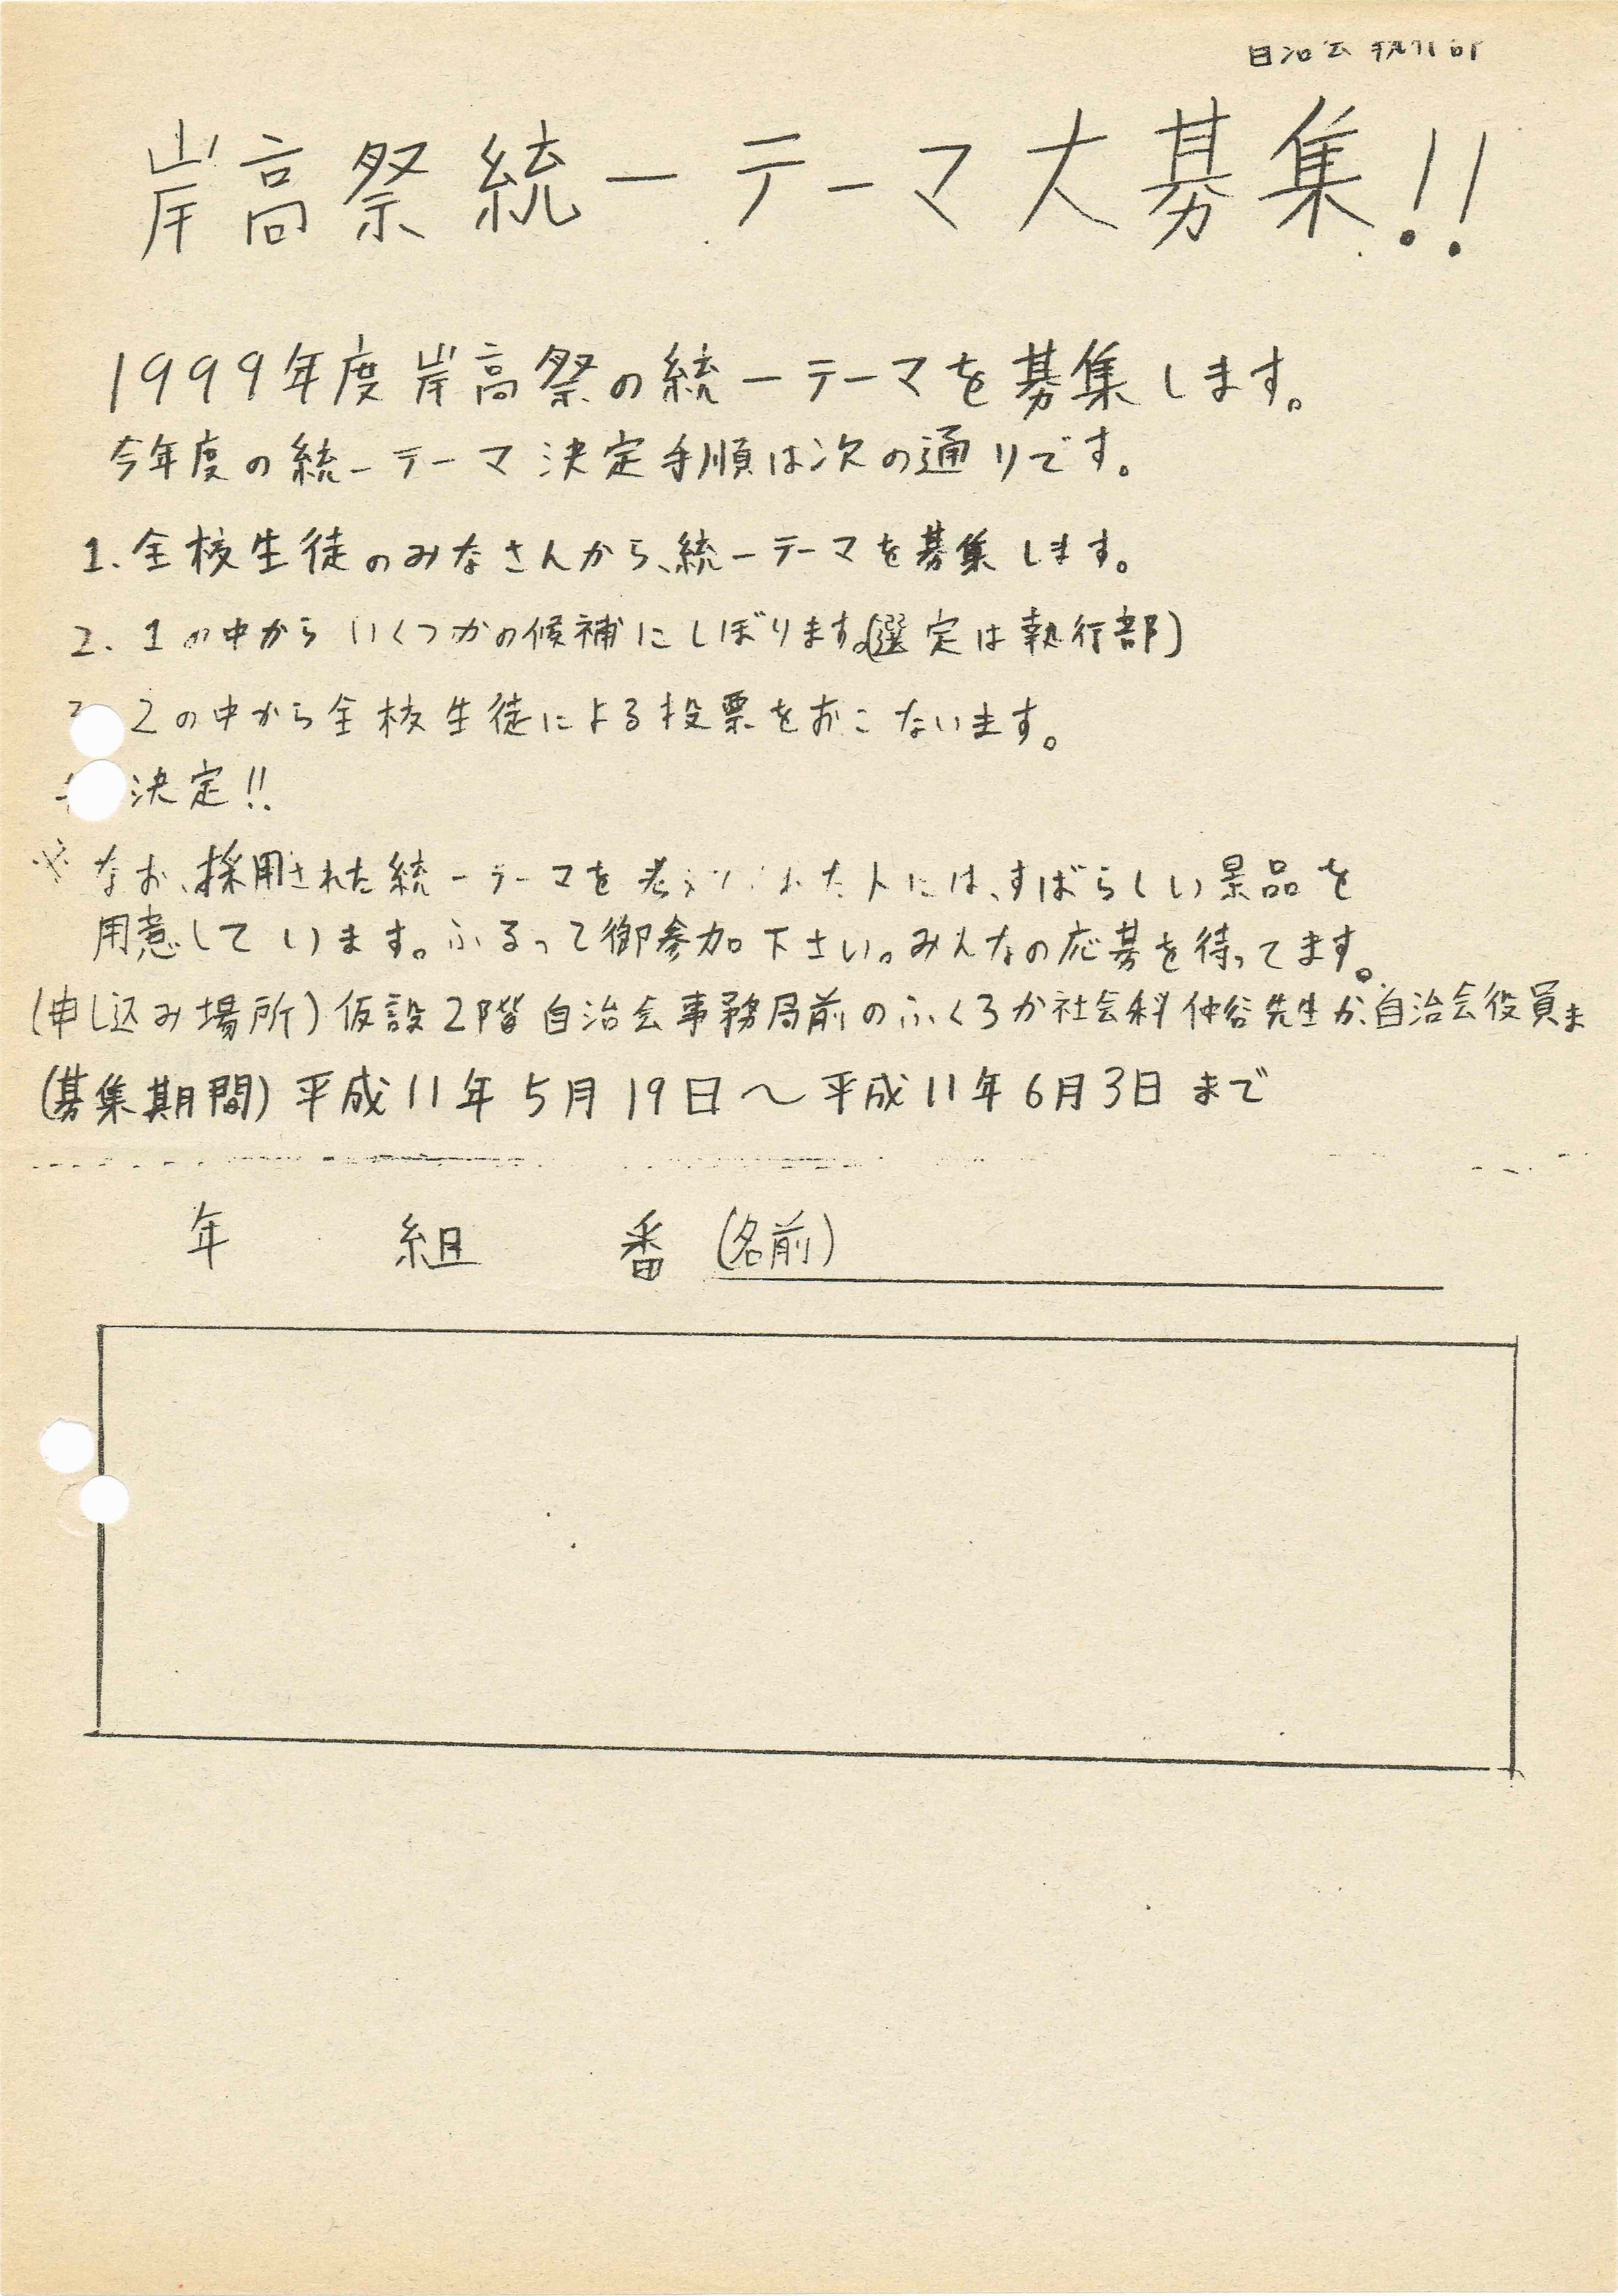 自治会執行部
岸高祭統一テーマ大募集!!
1999年度岸高祭の統一テーマを募集します。
今年度の統一テーマ決定手順は次の通りです。
1.全校生徒のみなさんから、統一テーマを募集します。
2.1の中からいくつかの候補にしぼります。(選定は執行部)
2の中から全校生徒による投票をおこないます。
決定!!
※なお、採用された統一テーマを た人には、すばらしい景品を
用意しています。ふるって御参加下さい。みんなの応募を待ってます。
(申し込み場所)仮設2階自治会事務局前のふくろか社会科仲谷先生か、自治会役員ま
(募集期間)平成11年5月19日〜平成11年6月3日まで
年 組 番(名前)